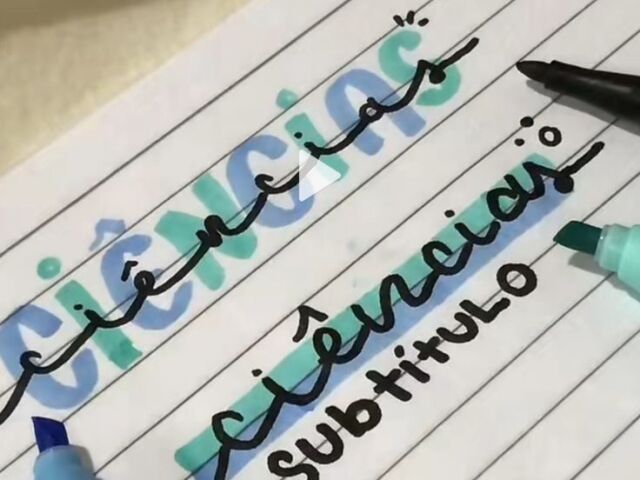 CiÊNCiAS
ciências
ciências
SUBTÍTULO